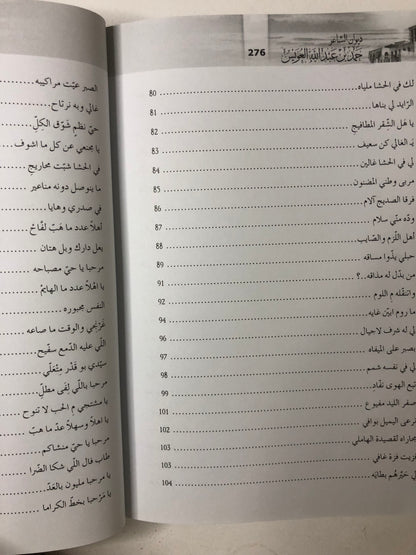 276
ديوان الشاعر
حمد بن عبدالله العويس
لك في الحشا ملياه 80
الزايد لي بناها 81
يا هل الشقر المطافيح 82
يد الغالي كن سعيف 83
في الحشا غالين 84
عربى وطني المضنون 85
فرقا الصديج آلام 86
وده متي سلام 87
أهل اللزم والصايب 88
حبلي يذوا مساقه 90
من بدل له مذاقه..؟ 91
وانتقله م اللوم 92
ما روم ابين غايه 94
لي له شرف لاجيال 96
يصبر على الميفاه 97
لي في نفسه شمم 98
تبع الهوى نفاد 99
صفر الليد مفيوع 101
نرعى اليميل بوافي 102
مجاراه لقصيدة الهاملي 103
فزيت فزة غافي 103
لي خبرهم بطانه 104
الصبر عيت مراكيبه
غالي وبه نرتاح
حي نظم شوق الكل
يا مجنعي عن كل ما اشوف
في الحشا شبت محاريج
ما يتوصل دونه مناعير
في صدري وهايا
أهلا عدد ما هب لفاح
يعل دارك وبل هتان
مرحبا يا حي مصباحه
يا اهلا عدد ما الهايم
النفس مجبوره
غربحي والوقت ما صاعه
اللي عليه الدمع سفيح
سيدي بو قدر متعلي
مرحبا باللي لفى مطلي
يا مشتجي م الحب لا تنوح
يا اهلا وسهلا عد ما هب
مرحبا يا حي منشاكم
طاب فال اللي شكا الضرا
يا مرحبا مليون بالعد
يا مرحبا بخط الكراما